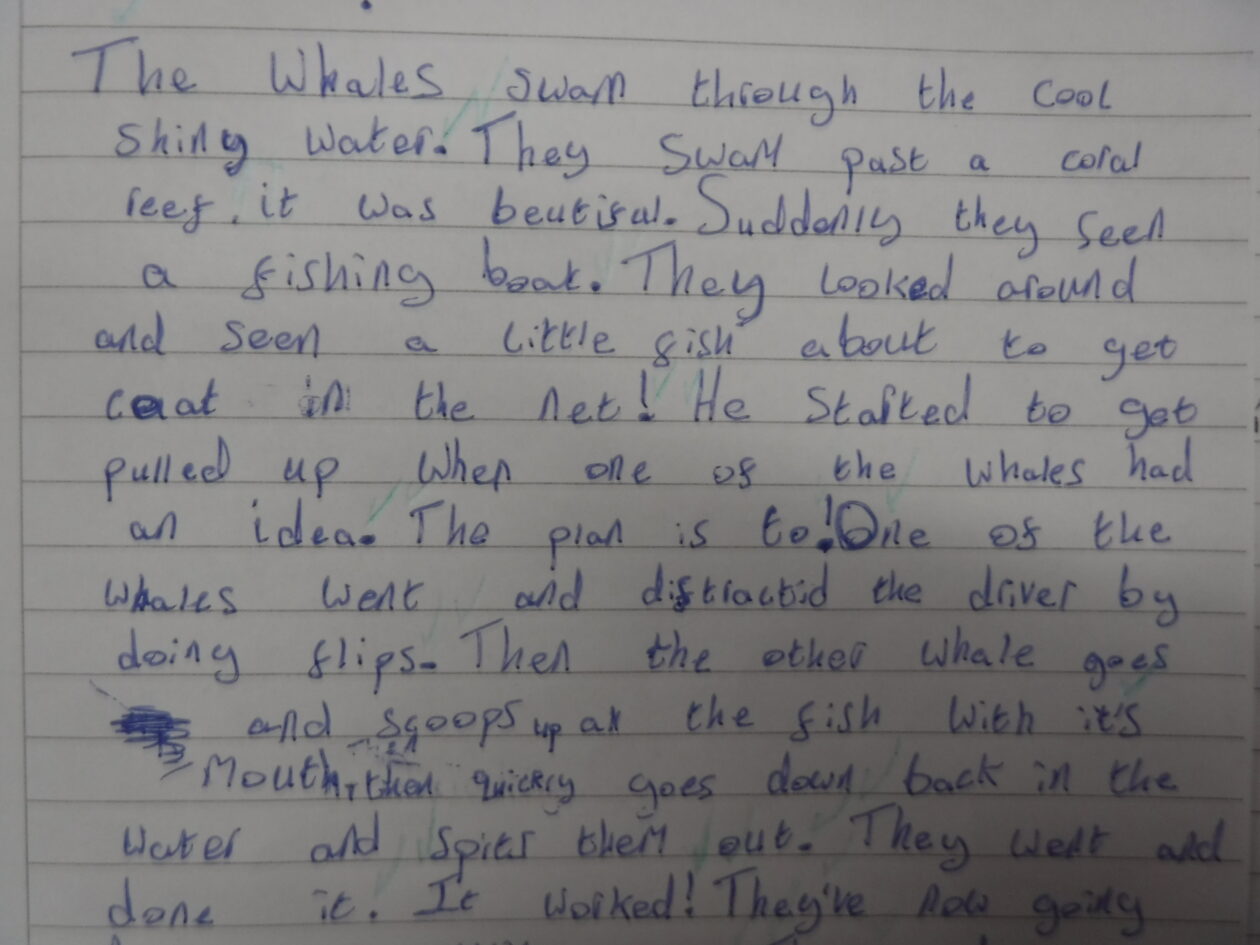 The Whales swam through the cool
shiny water. They swam past a coral
reef. it was beutiful. Suddenly they seen
a fishing boat. They looked around
and seen a little fish about to get
caat in the net! He started to get
pulled up when one of the whales had
an idea. The plan is to! One of the
whales went and distractid the driver by
doing flips. Then the other whale goes
and scoops up all the fish with it's
mouth, then quickly goes down back in the
water and spits them out. They went and
done it. It worked! They're now going